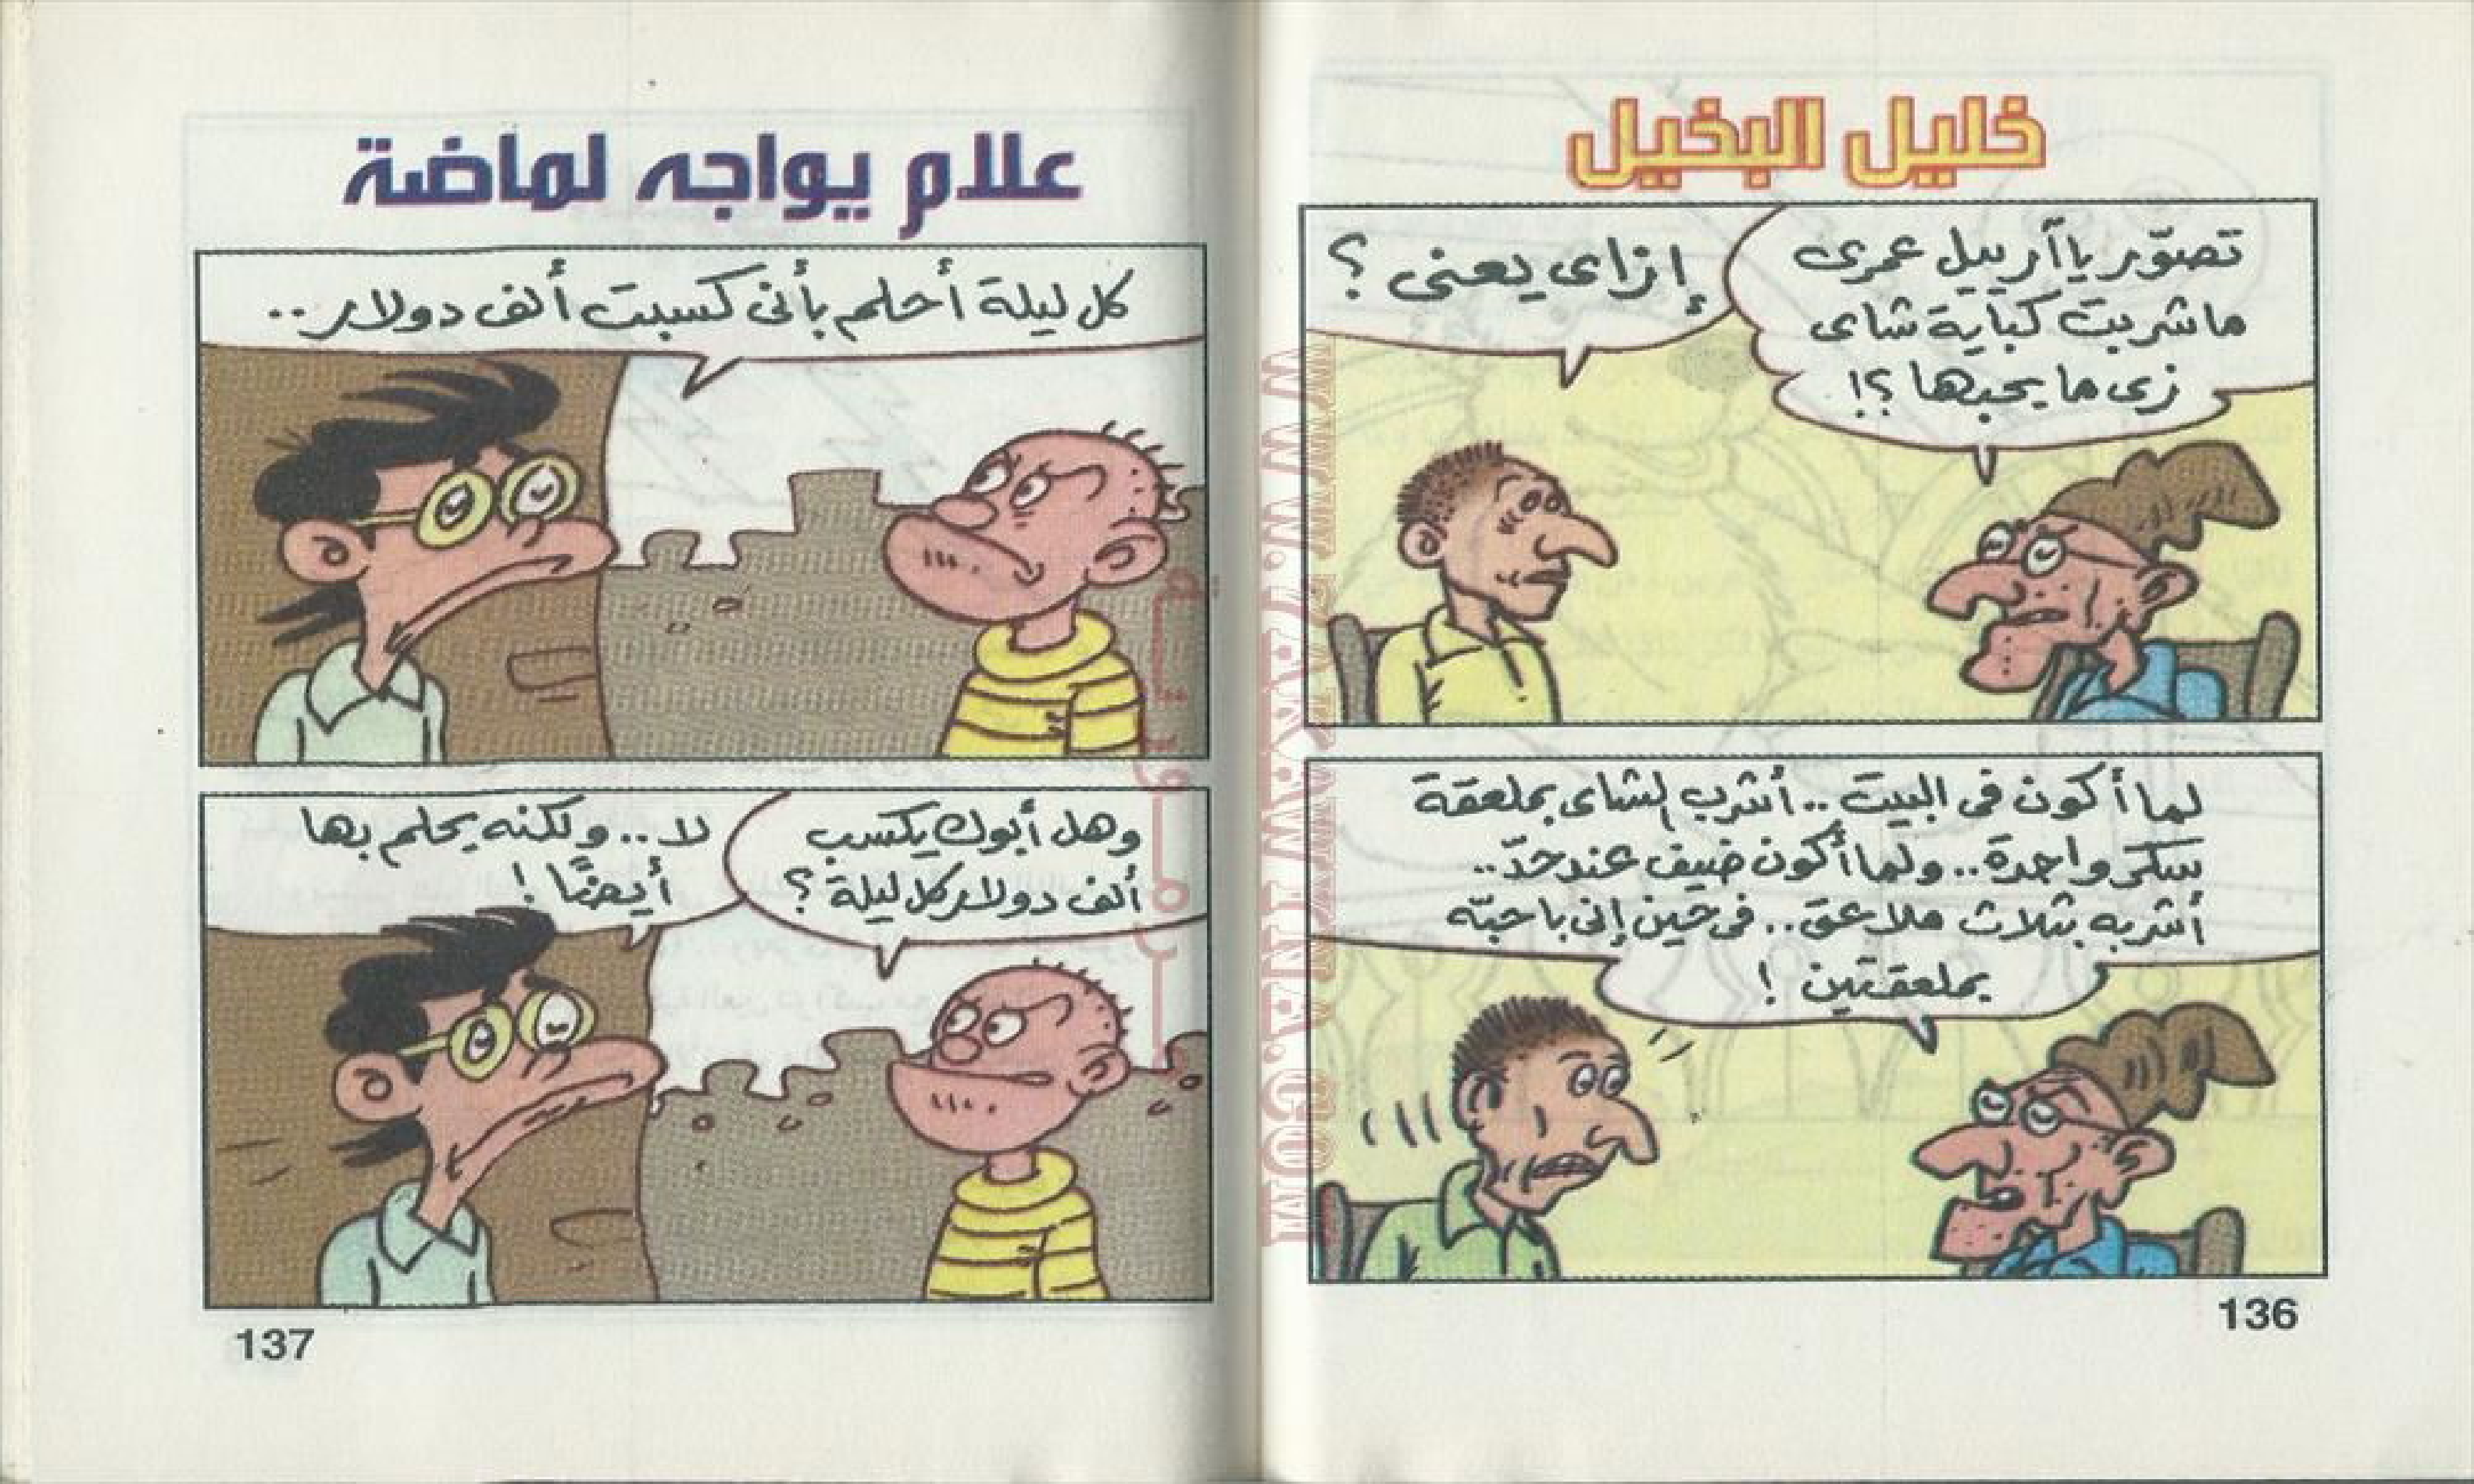 خليل البخيل
تصوّر يا آربيل عمرى
ما شربت كباية شاى
زى ما يحبها ؟!
إزاى يعنى ؟
لما أكون فى البيت .. أشرب الشاى بملعقة
سكر واحدة .. ولما أكون ضيف عند حدّ ..
أشربه بثلاث ملاعق .. فى حين إنى باحبّه
بملعقتين !
136
علام يواجه لماضة
كل ليلة أحلم بأنى كسبت ألف دولار ..
وهل أبوك يكسب
ألف دولار كل ليلة ؟
لا .. ولكنه يحلم بها
أيضًا !
137